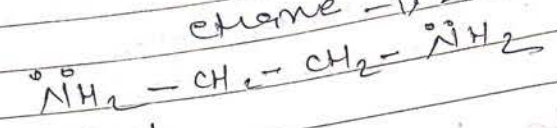 ethane - 1
N̈H₂ - CH₂ - CH₂ - N̈H₂